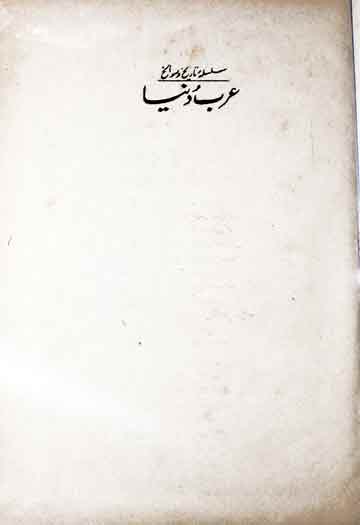 سلسلۂ تاریخ و سوانح
عرب دُنیا